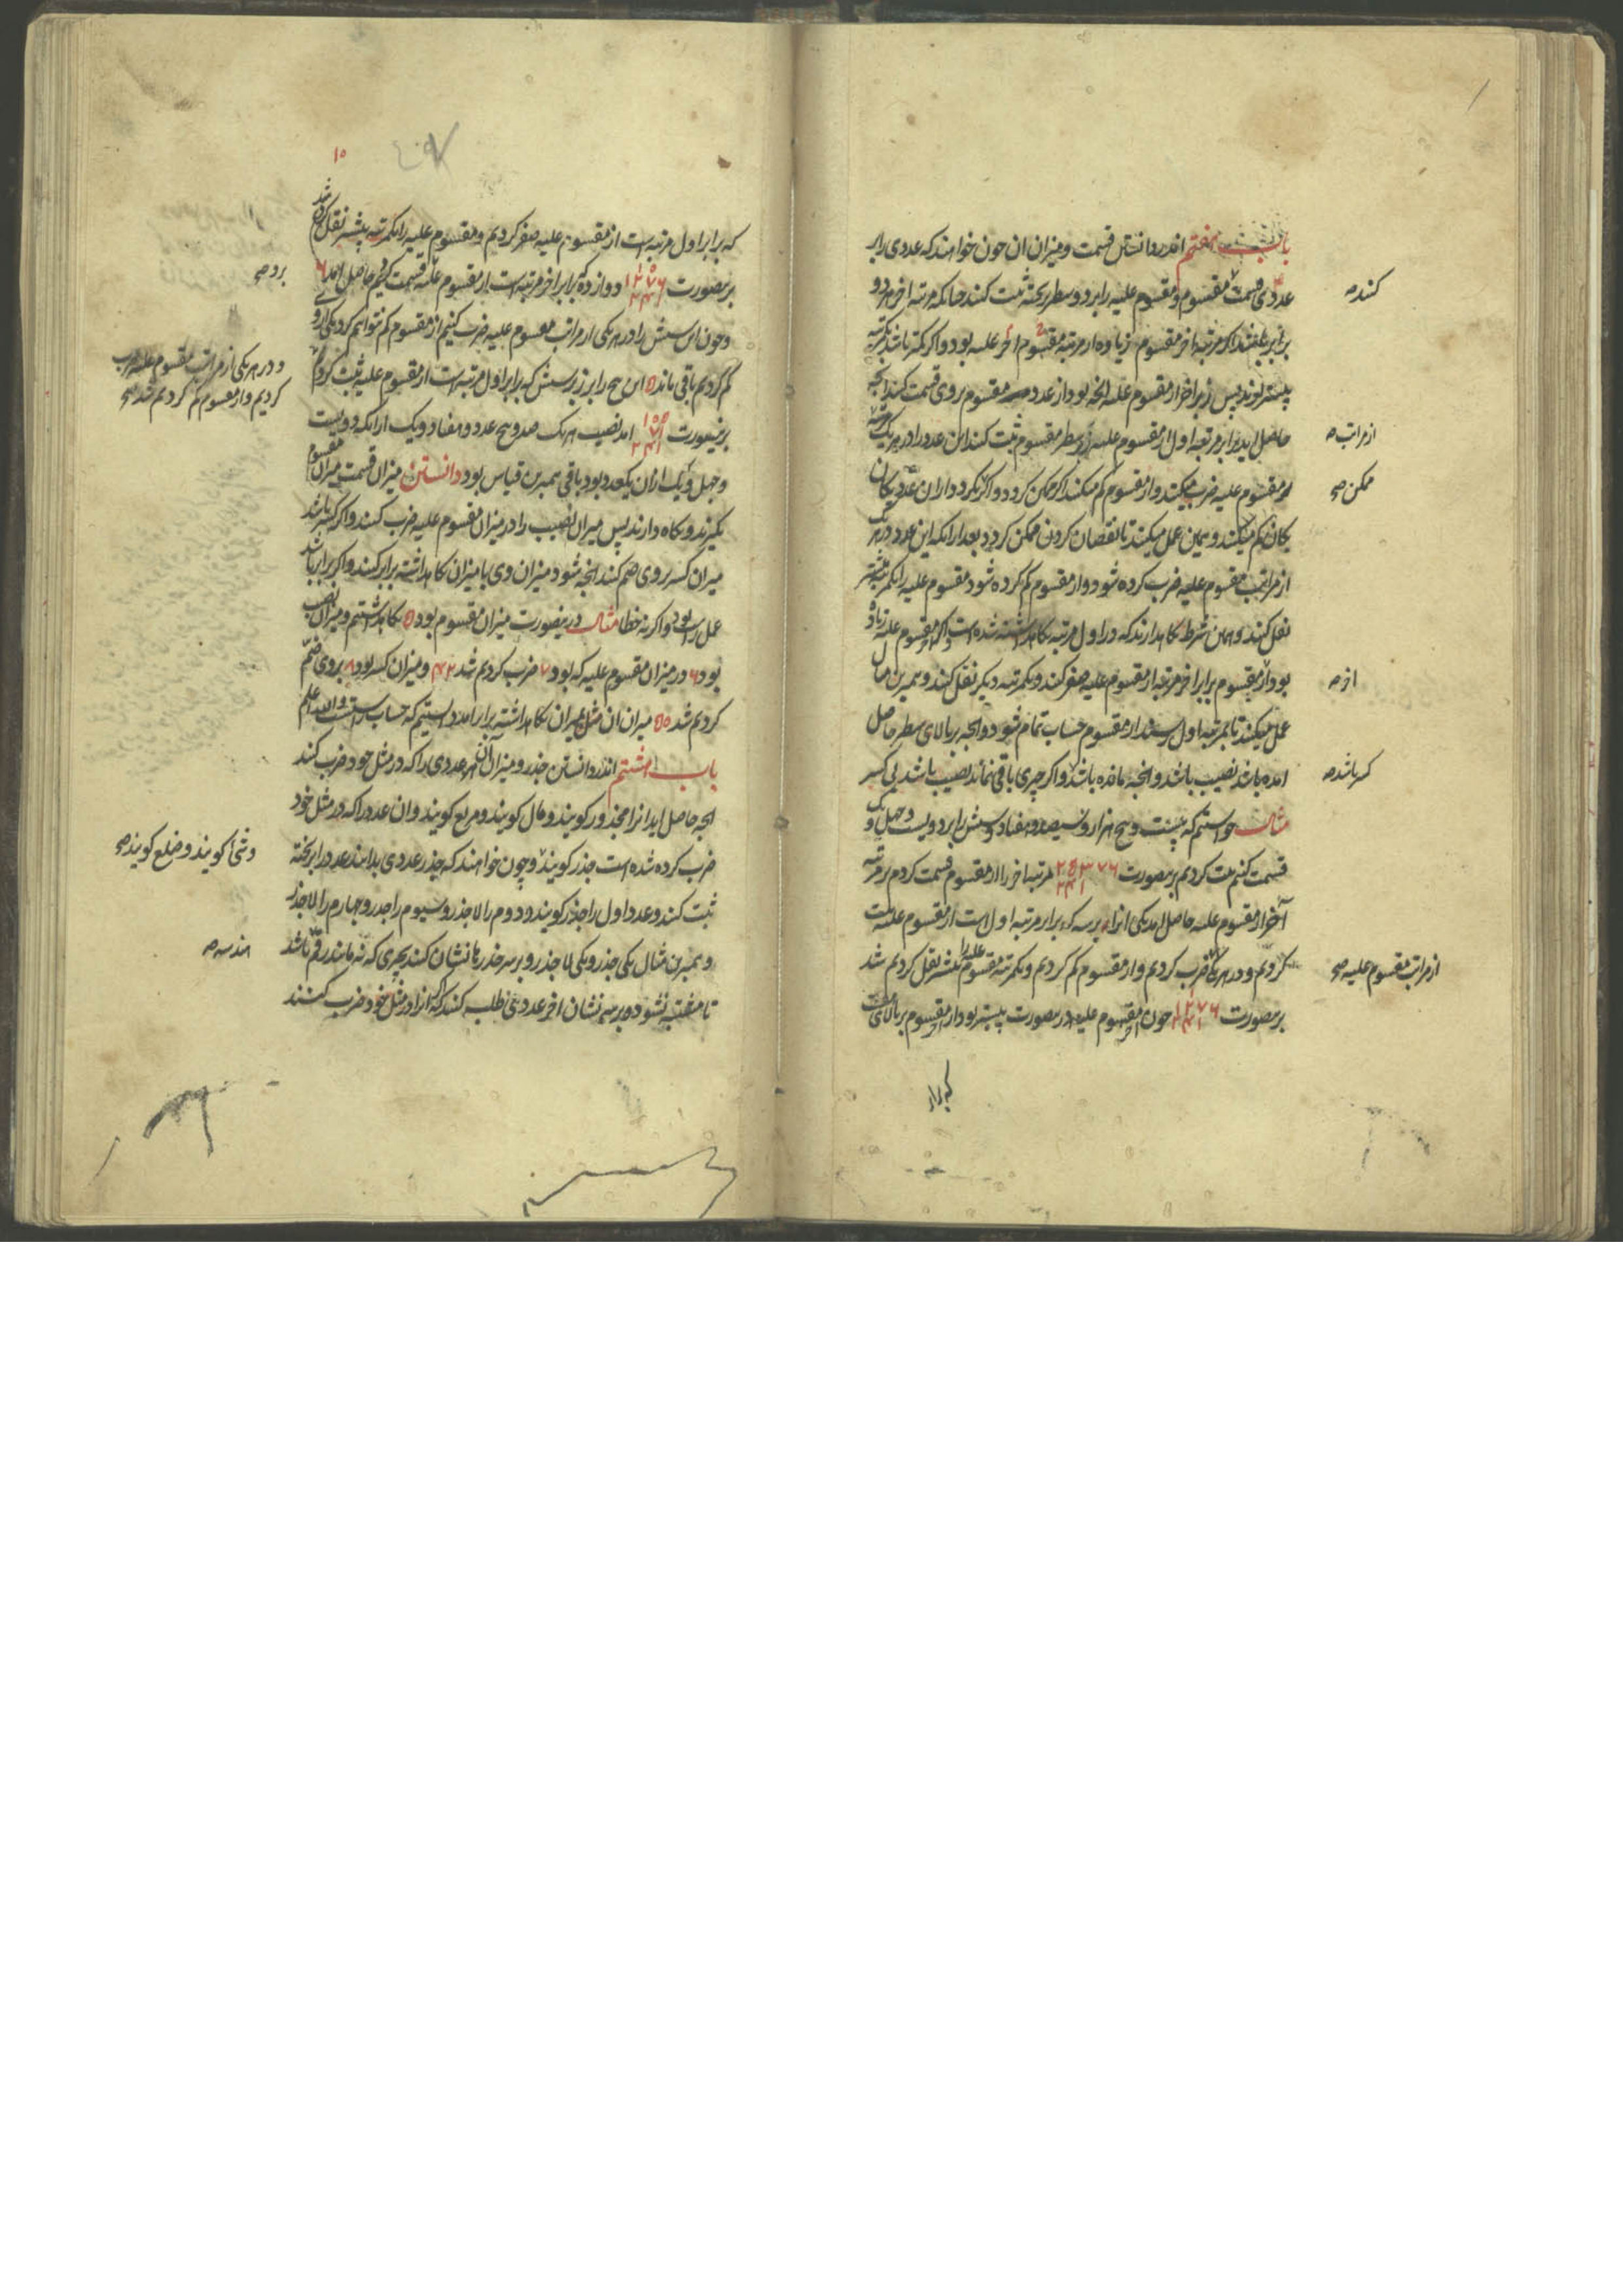 باب هفتم اندر دانستن قسمت و میزان ان چون خواهند که عددی را بر
عددی قسمت مقسوم و مقسوم علیه را بر دو سطر تخته ثبت کنند چنانکه مرتبه اخر هر دو
کنند صح
برابر یکدیگر مرتبه اخر مقسوم زیاده از مرتبه مقسوم اخر علیه بود و اگر کمتر باشد یکمرتبه
پیشتر پس اخر از مقسوم علیه انچه بود از عدد مقسوم بر وی قسمت کنند انچه
حاصل اید برابر مرتبه اول از مقسوم علیه بر سطر مقسوم ثبت کنند این عدد را در هر یک
از مراتب صح
مقسوم علیه ضرب میکنند و از مقسوم کم میکنند اگر ممکن گردد و اگر نگردد از ان عدد یکان
ممکن صح
یکان کم میکنند و همین عمل میکنند تا نقصان کردن ممکن گردد بعد از انکه این عدد در هر یک
از مراتب مقسوم علیه ضرب کرده شود و از مقسوم کم کرده شود مقسوم علیه را یکمرتبه پیشتر
نقل کنند و همان شرط نگاه دارند که در اول مرتبه نگاه داشته شده است و اگر مقسوم علیه زیاده
بود از مقسوم برابر اخر مرتبه از مقسوم علیه صفر کنند و یکمرتبه دیگر نقل کنند و همبرین مثال
از صح
عمل میکنند تا بمرتبه اول رسند از مقسوم حساب تمام شود و انچه بر بالای سطر حاصل
امده باشد نصیب باشد و انچه مانده باشد و اگر چیزی باقی نماند نصیب باشد بی کسر
کسر باشد صح
مثال خواستیم که بیست و پنج هزار و سیصد و هفتاد و شش را بر دویست و چهل و یک
قسمت کنیم ثبت کردیم برینصورت ۲۵۳۷۶ ۲۴۱ مرتبه اخر را از مقسوم قسمت کردیم بر مرتبه
آخر از مقسوم علیه حاصل امد یکی انرا بر سه که برابر مرتبه اول است از مقسوم علیه ثبت
کردیم و در هر یکی ضرب کردیم و از مقسوم کم کردیم و یکمرتبه مقسوم علیه را پیشتر نقل کردیم شد
از مراتب مقسوم علیه صح
برینصورت ۱۲۷۶ ۲۴۱ چون اخر مقسوم علیه درینصورت بیشتر بود از مقسوم بر بالای هفت
که برابر
۱۰
که برابر اول مرتبه است از مقسوم علیه صفر کردیم و مقسوم علیه را یکمرتبه پیشتر نقل کردیم شد
برینصورت ۱۲۷۶ ۲۴۱ دوازده که برابر اخر مرتبه است از مقسوم علیه قسمت کردیم حاصل امد ۶
برو صح
و چون این شش را در هر یکی از مراتب مقسوم علیه ضرب کنیم از مقسوم کم نتوانیم کرد یکی از و
کم کردیم باقی ماند ۵ این پنج را بر زبر شش که برابر اول مرتبه است از مقسوم علیه ثبت کردیم
و در هر یکی از مراتب مقسوم علیه ضرب
کردیم و از مقسوم کم کردیم شد صح
برینصورت ۱۰۵ ۷۱ ۲۴۱ امد نصیب هر یک صد و پنج عدد و هفتاد و یک از انکه دویست
و چهل و یک از ان یکعدد بود باقی همبرین قیاس بود دانستن میزان قسمت میزان مقسوم
بگیرند و نگاه دارند پس میزان نصیب را در میزان مقسوم علیه ضرب کنند و اگر کسر باشد
میزان کسر بر وی ضم کنند انچه شود میزان وی با میزان نگاه داشته برابر کنند و اگر برابر باشد
عمل راست بود و اگر نه خطا مثال درینصورت میزان مقسوم بود ۵ نگاه داشتیم و میزان نصیب
بود ۶ در میزان مقسوم علیه که بود ۷ ضرب کردیم شد ۴۲ و میزان کسر بود ۸ بر وی ضم
کردیم شد ۵۰ میزان ان مثل میزان نگاه داشته برابر امد دانستیم که حساب راستست والله اعلم
باب هشتم اندر دانستن جذر و میزان ان هر عددی را که در مثل خود ضرب کنند
انچه حاصل اید انرا مجذور گویند و مال گویند و مربع گویند و ان عدد را که در مثل خود
ضرب کرده شده است جذر گویند و چون خواهند که جذر عددی بدانند عدد را بر تخته
و شی گویند و ضلع گویند صح
ثبت کنند و عدد اول را جذر گویند و دوم را لاجذر و سیوم را جذر و چهارم را لاجذر
و همبرین مثال یکی جذر و یکی لاجذر و بر سر جذرها نشان کنند بچیزی که نه مانند رقم باشد
هندسه صح
تا مشتبه نشود و بر سر نشان اخر عددی طلب کنند که انرا در مثل خود ضرب کنند